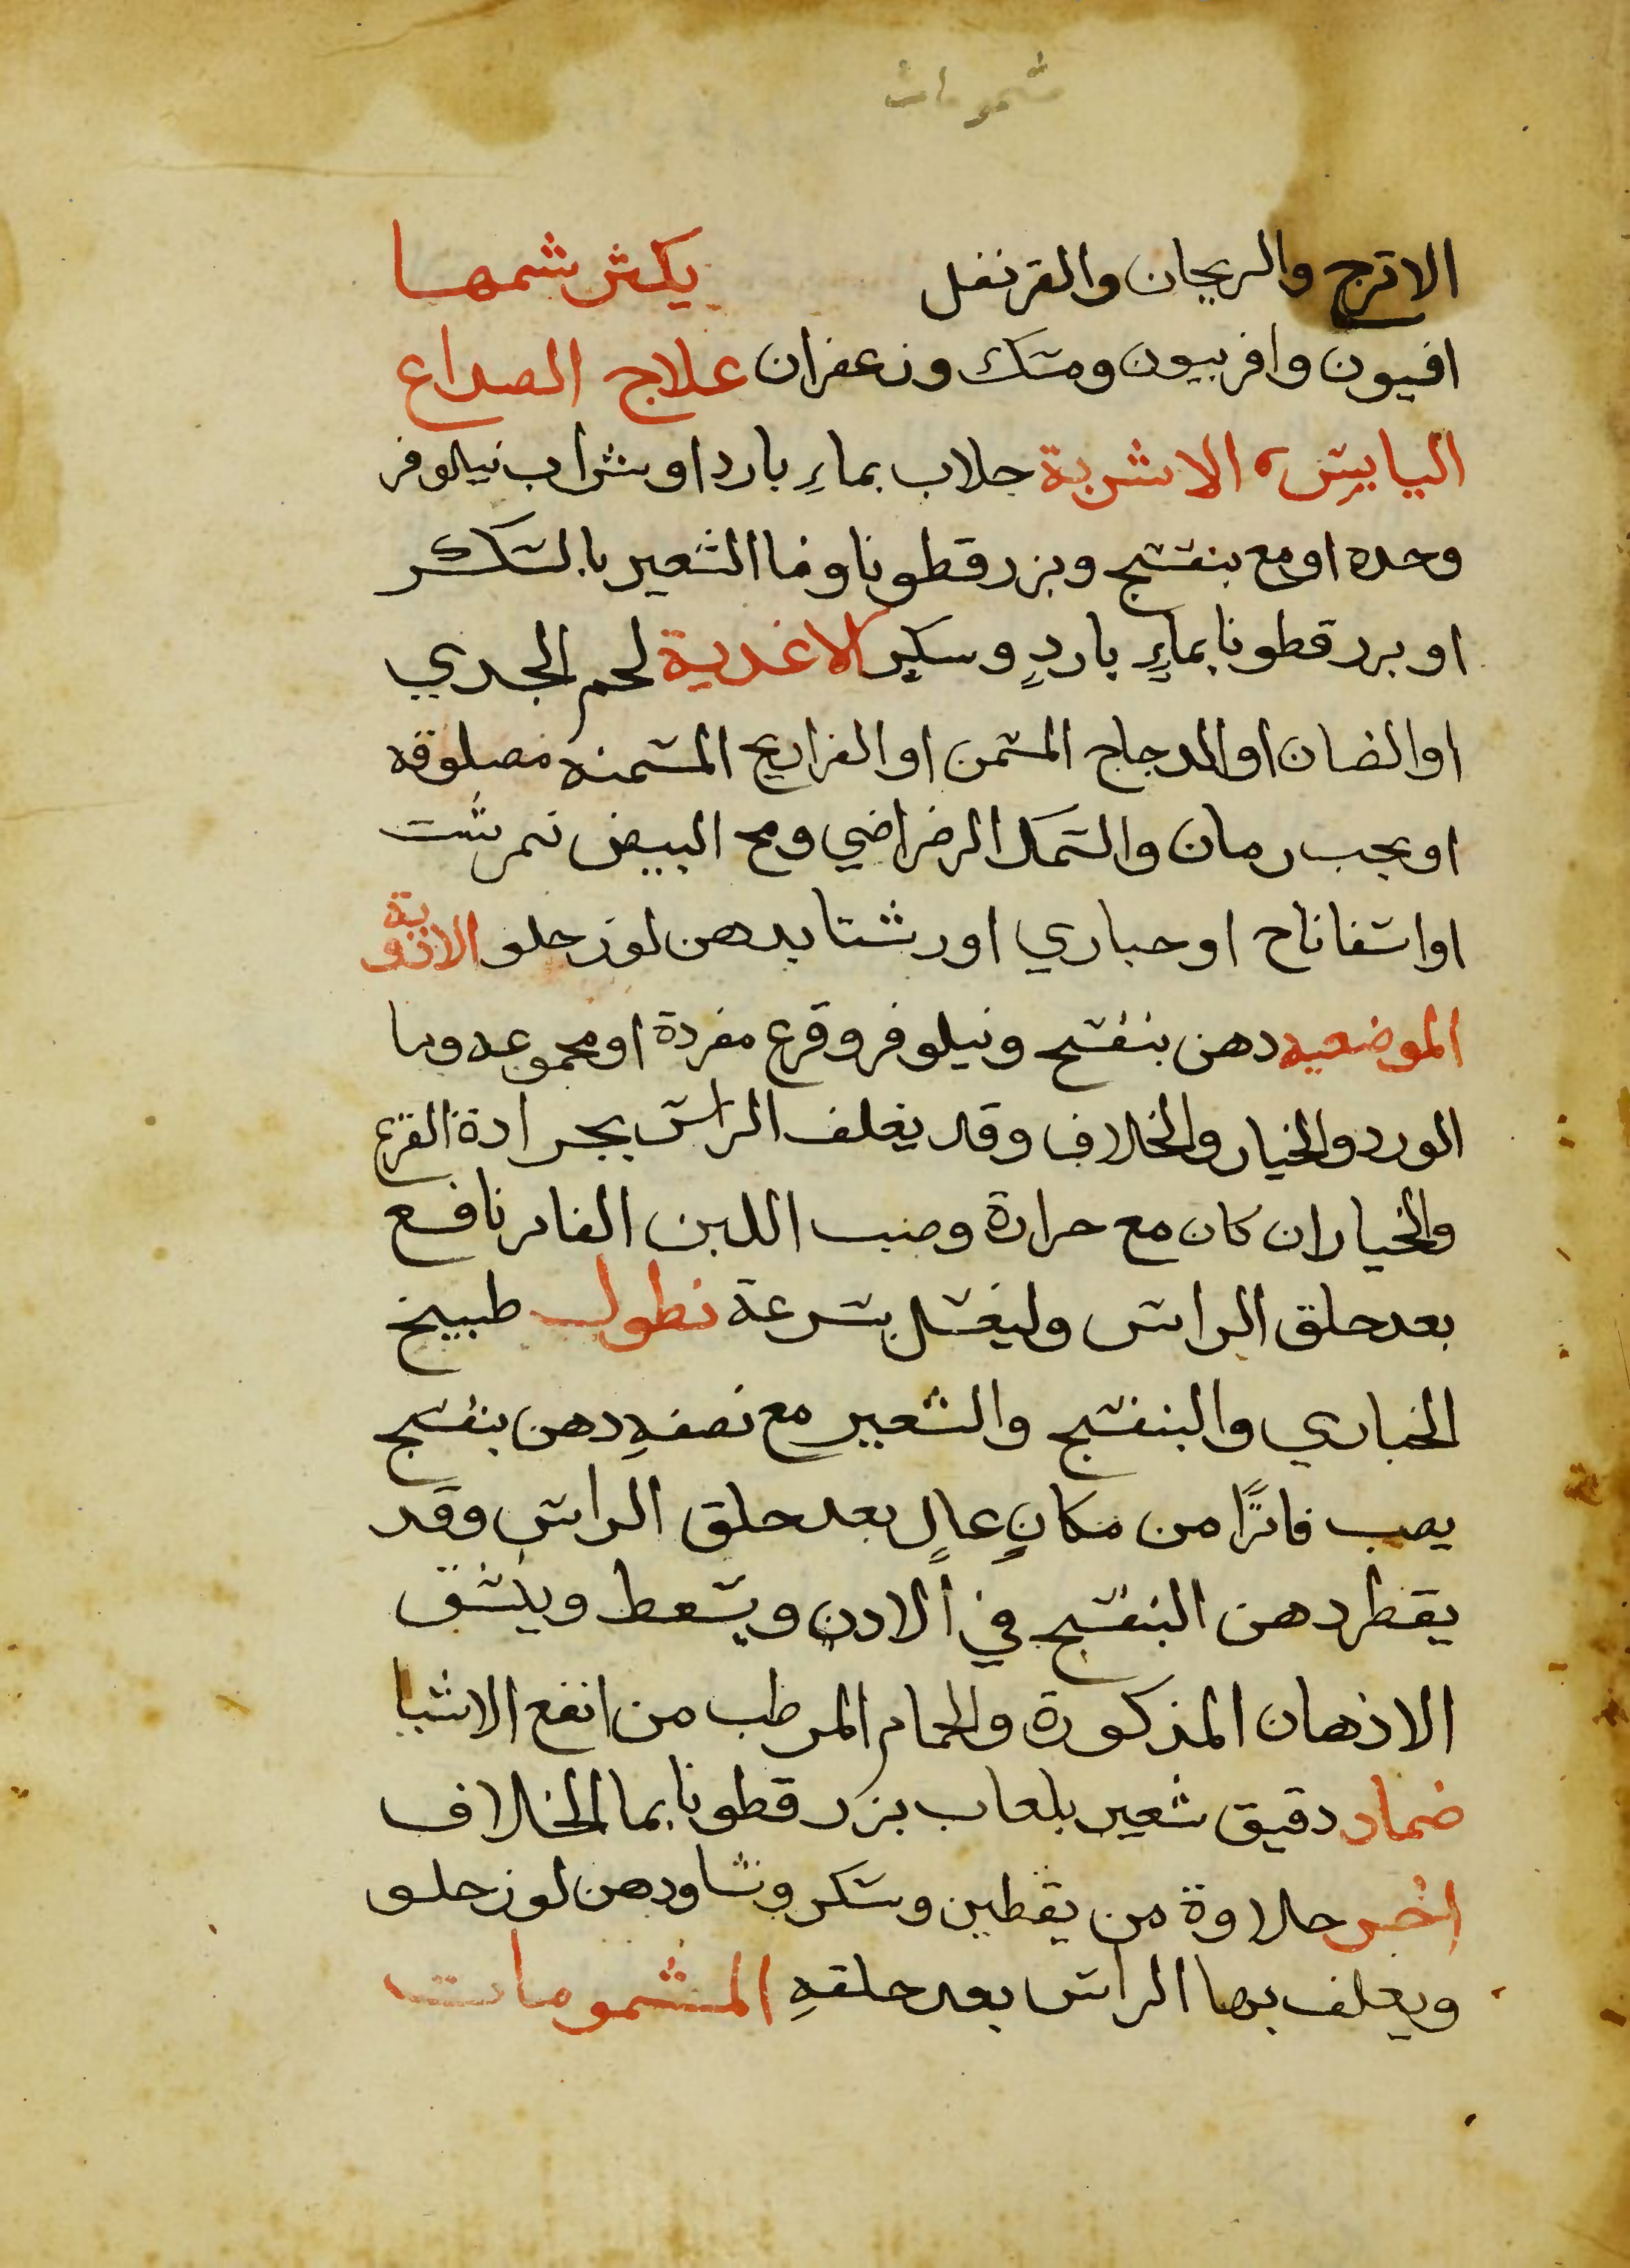 شمومات
الاترج والريحان والقرنفل يكثر شمها
افيون وافربيون ومسك وزعفران علاج الصداع
اليابس، الاشربة جلاب بماءِ بارد او شراب نيلوفر
وحده او مع بنفسج وبزر قطونا وما الشعير بالسكر
او بزر قطونا بماءٍ باردٍ وسكر الاغدية لحم الجدي
او الضان او الدجاج المسمن او الفراريج المسمنه مصلوقه
او بحب رمان والسمك الرضراضي ومح البيض نمرشت
او اسفاناخ او خبازي او رشتا بدهن لوز حلو الادوية
الموضعيه دهن بنفسج ونيلوفر وقرع مفردة او مجموعه وما
الورد والخيار والخلاف وقد يغلف الراس بجرادة القرع
والخيار ان كان مع حرارة وصب اللبن الفاتر نافع
بعد حلق الراس وليغسل بسرعة نطول طبيخ
الخبازي والبنفسج والشعير مع نصفهِ دهن بنفسج
يصب فاترًا من مكانٍ عالٍ بعد حلق الراس وقد
يقطر دهن البنفسج في الادن ويسعط وينشق
الادهان المذكورة والحمام المرطب من انفع الاشيا
ضماد دقيق شعير بلعاب بزر قطونا بما الخلاف
اخر حلاوة من يقطين وسكر ونشا ودهن لوز حلو
ويغلف بها الراس بعد حلقهِ المشمومات